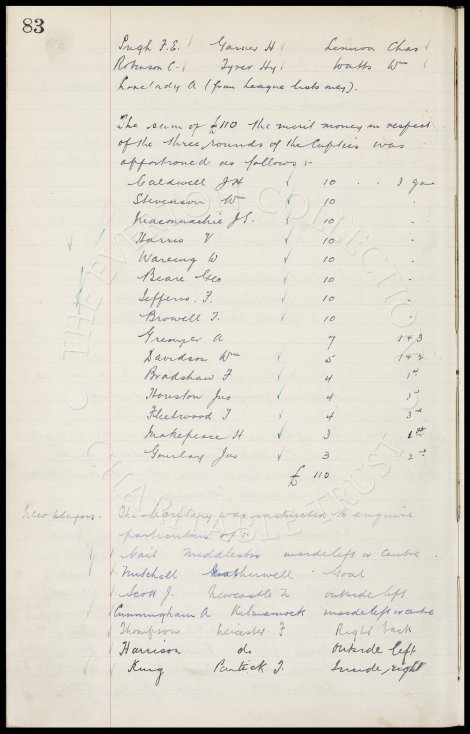 83
Pugh F.E. Garner H Lennon Chas
Robinson C. Tyrer Hy Watts Wm
Lonclady A (from League lists over).
The sum of £110 the merit money in respect
of the three rounds of the Cupties was
apportioned as follows :-
Caldwell J H 10 . . 3 gas
Stevenson Wm 10 "
Maconnachie J S. 10 "
Harris V 10 "
Wareing W 10 "
Beare Geo 10 "
Jefferis F. 10 "
Browell T. 10 "
Grenyer A 7 1+3
Davidson Wm 5 1+2
Bradshaw F 4 1st
Houston Jno 4 3rd
Fleetwood T 4 3rd
Makepeace H 3 1st
Gourlay Jas 3 2nd
£ 110
New Players. The Secretary was instructed to enquire
particulars of :-
Cail Middlesbro inside left or centre
Mitchell Motherwell Goal
Scott J. Newcastle U. outside left
Cunningham A Kilmarnock inside left or centre
Thompson Leicester F Right back
Harrison do outside left
King Partick T. Inside right
THE EVERTON COLLECTION
CHARITABLE TRUST